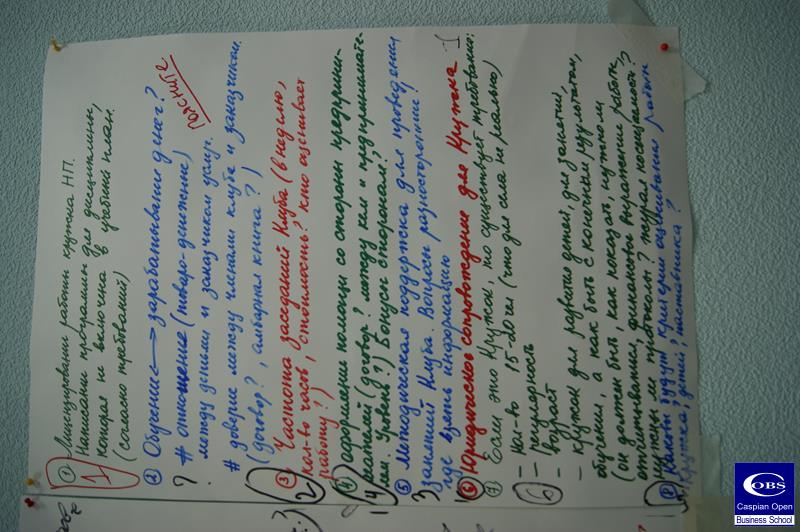 ① Лицензировании работы кружка НП.
Написании программы для дисциплины,
которая не включена в учебный план.
(согласно требований)
1
② Обучение ↔ зарабатывания денег?
поясните
? # отношение (товаро-денежные)
между детьми и заказчиком услуг.
# доверие между членами клуба и заказчиком.
(договор?, амбарная книга?)
③ Частота заседаний Клуба (в неделю,
кол-во часов, стоимость? кто оценивает
работу?)
2
④ оформление помощи со стороны предприни-
мателей (договор? между кем и предпринимате-
лем. Уровень?) Бонусы сторонам?
4
⑤ методическая поддержка для проведения
занятий Клуба. Вопросы разносторонние!
где взять информацию
3
⑥ Юридическое сопровождение для Кружка
⑦ Если это Кружок, но существует требование:
- кол-во 15-20 чел (что для села не реально)
- регулярность
- возраст
6
- кружок для развития детей, для занятий,
обучения, а как быть с конечным результатом,
(он должен быть, как показать, путем
отчитывания, финансовы выражении работы,
нужны ли протоколы? журнал посещаемой?)
⑧ Каковы будут критерии оценивания работы
Кружка, детей, наставника?
OBS
Caspian Open
Business School